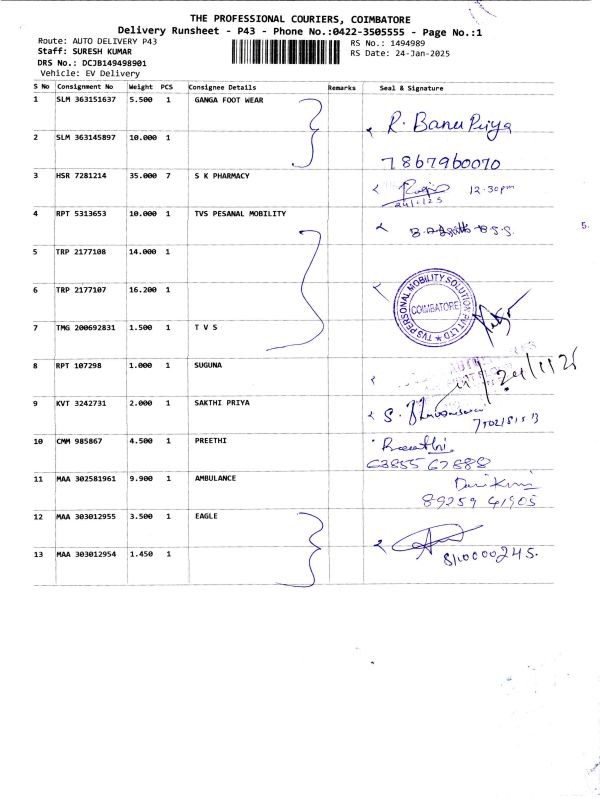 THE PROFESSIONAL COURIERS, COIMBATORE
Delivery Runsheet - P43 - Phone No.:0422-3505555 - Page No.:1
Route: AUTO DELIVERY P43
RS No.: 1494989
Staff: SURESH KUMAR
RS Date: 24-Jan-2025
DRS No.: DCJB149498901
Vehicle: EV Delivery
S No Consignment No Weight PCS Consignee Details Remarks Seal & Signature
1 SLM 363151637 5.500 1 GANGA FOOT WEAR
R. Banu Priya
2 SLM 363145897 10.000 1
7867960070
3 HSR 7281214 35.000 7 S K PHARMACY
12-30pm
24/1/25
4 RPT 5313653 10.000 1 TVS PESANAL MOBILITY
5.
5 TRP 2177108 14.000 1
6 TRP 2177107 16.200 1
TVS PERSONAL MOBILITY SOLUTION PVT LTD
COIMBATORE
7 TMG 200692831 1.500 1 T V S
8 RPT 107298 1.000 1 SUGUNA
24/1/25
9 KVT 3242731 2.000 1 SAKTHI PRIYA
S.
10 CMM 985867 4.500 1 PREETHI
Preethi
63855 67888
11 MAA 302581961 9.900 1 AMBULANCE
89259 41905
12 MAA 303012955 3.500 1 EAGLE
13 MAA 303012954 1.450 1